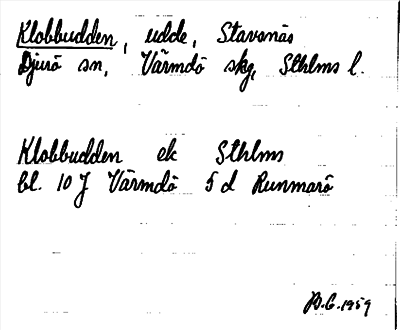 Klobbudden, udde, Stavsnäs
Djurö sn, Värmdö skg, Sthlms l.
Klobbudden ek Sthlms
bl. 10 J Värmdö 5 d Runmarö
B.G. 1959